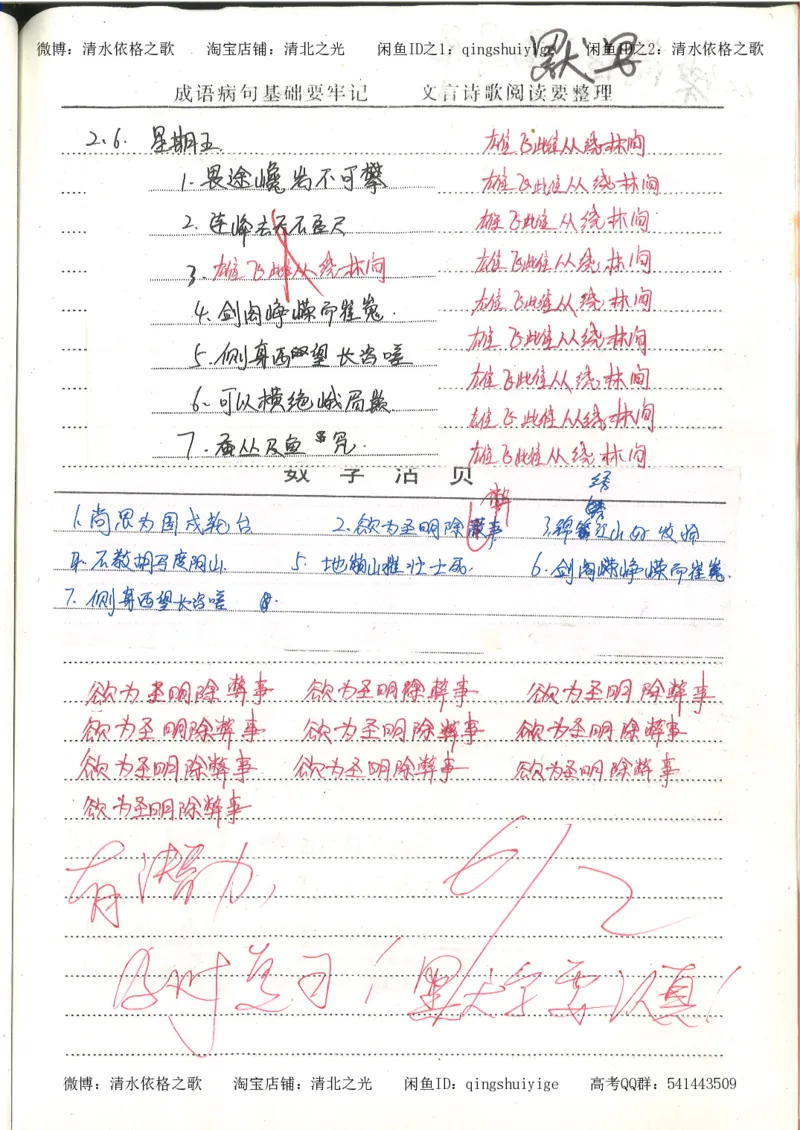 微博：清水依格之歌 淘宝店铺：清北之光 闲鱼ID之1：qingshuiyige 闲鱼ID之2：清水依格之歌
默写
成语病句基础要牢记 文言诗歌阅读要整理
2.6. 星期五 雄飞雌从绕林间
1.畏途巉岩不可攀 雄飞雌从绕林间
2.连峰去天不盈尺 雄飞雌从绕林间
3.雄飞雌从绕林间 雄飞雌从绕林间
4.剑阁峥嵘而崔嵬. 雄飞雌从绕林间
雄飞雌从绕林间
5.侧身西望长咨嗟 雄飞雌从绕林间
6.可以横绝峨眉巅. 雄飞雌从绕林间
7.蚕丛及鱼凫. 雄飞雌从绕林间
弊 绣
1.尚思为国戍轮台 2.欲为圣明除事 3.锦江山
4.不教胡马度阴山. 5.地 壮士死. 6.剑阁峥嵘而崔嵬.
7.侧身西望长咨嗟 8.
欲为圣明除弊事 欲为圣明除弊事 欲为圣明除弊事
欲为圣明除弊事 欲为圣明除弊事 欲为圣明除弊事
欲为圣明除弊事 欲为圣明除弊事 欲为圣明除弊事
欲为圣明除弊事
有潜力, 6/2
及时复习！默写要认真！
微博：清水依格之歌 淘宝店铺：清北之光 闲鱼ID：qingshuiyige 高考QQ群：541443509